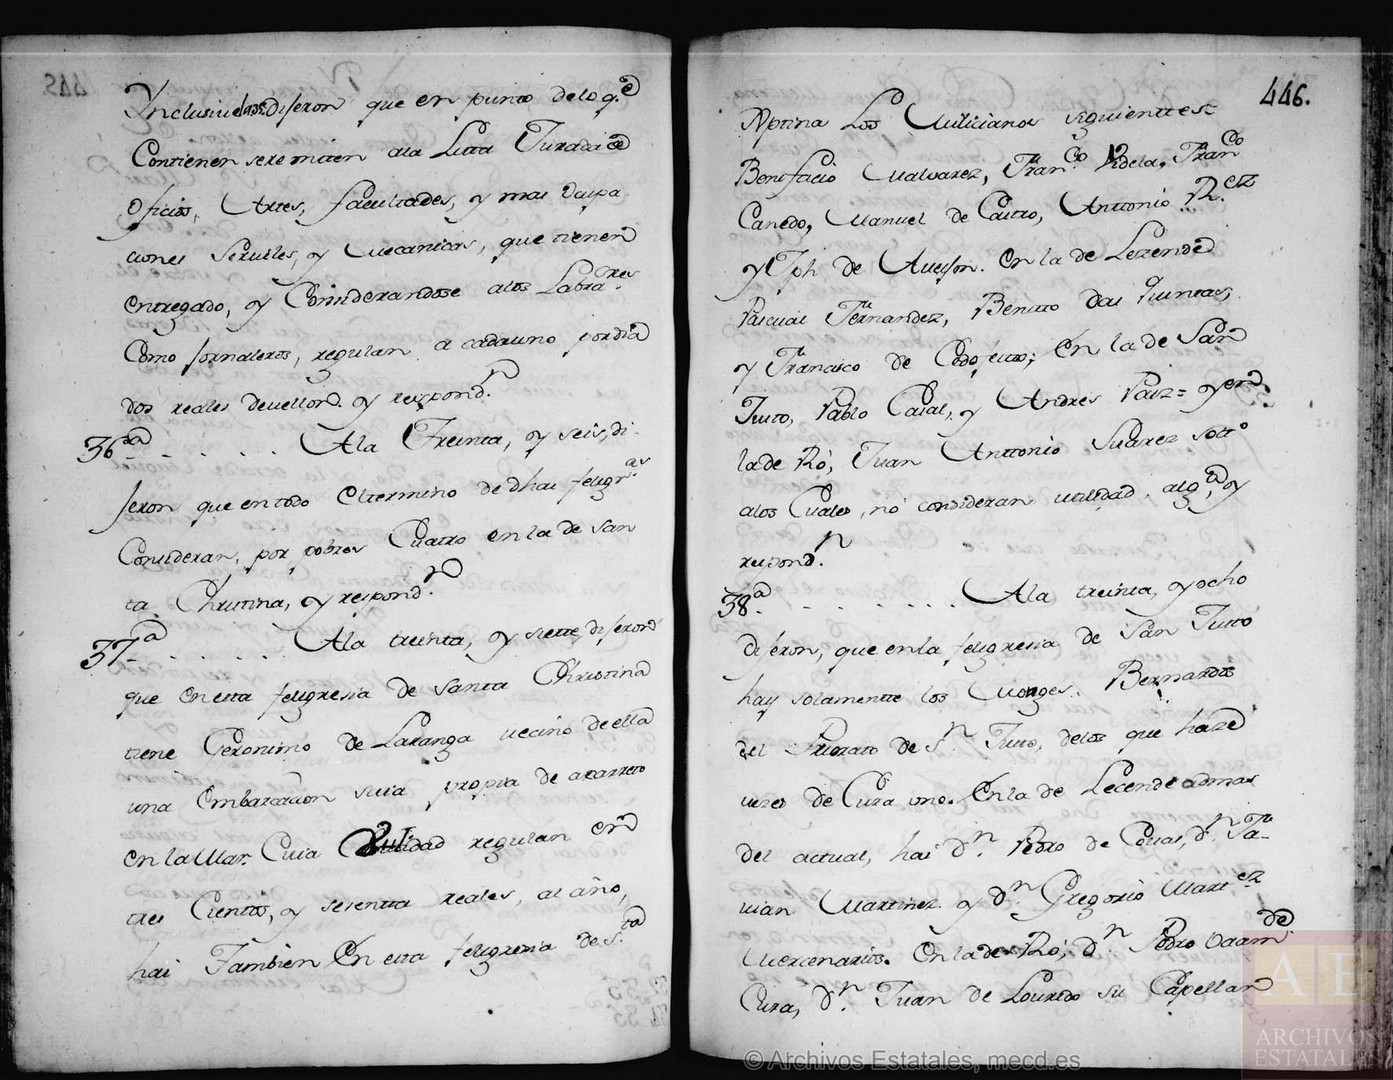 Inclusive dijeron que en punto de lo q.e
Contienen se remiten a la Lista Jurada de
oficios, Artes, facultades, y mas Ocupa
ciones Serviles, y Mecanicas, que tienen
entregado, y Considerandose a los Labra.res
Como Jornaleros, regulan a cada uno por dia
dos reales de vellon. y respond.n
36.a - - - - - A la Treinta, y seis, di
jeron que en todo el termino de dhas feligr.as
Consideran, por pobres Quatro en la de San
ta Christina, y respond.n
37.a - - - - - A la treinta, y siette, dijeron
que en esta feligresia de Santa Christina
tiene Geronimo de Laranga vecino de ella
una Embarcacion suia propia de acarreto
en la Mar. Cuia Utilidad regulan en
tres Cientos, y sesentta reales, al año,
hai Tambien En esta feligresia de S.ta
446.
Xptina Los Milicianos siguienttes
Bonifacio Malvarez, Fran.co Videla, Fran.co
Canedo, Manuel de Castro, Anttonio R.
y Jph de Aueyson. en la de Lezende
Pascual Fernandez, Benitto das Quintas,
y Francisco de Codojeiro; En la de San
Justo, Pablo Casal, y Andres Paiz = y en
la de Ro, Juan Anttonio Suarez Sotto
a los Cuales, no consideran utilidad alg.a, y
respond.n
38.a - - - - - A la treinta, y ocho
dijeron, que en la feligresia de San Justo
hay solamentte los Monges Bernardos
del Priorato de S.n Justo, de los que haze
vezes de Cura uno. En la de Lecende a demas
del actual, hai D.n Pedro de Couas, D.n Fa-
uian Martinez y D.n Gregorio Martez
Mercenarios. En la de Ro, D.n Pedro Baam.de
Cura, D.n Juan de Louredo su Capellan
© Archivos Estatales, mecd.es
AE
ARCHIVOS
ESTATALES